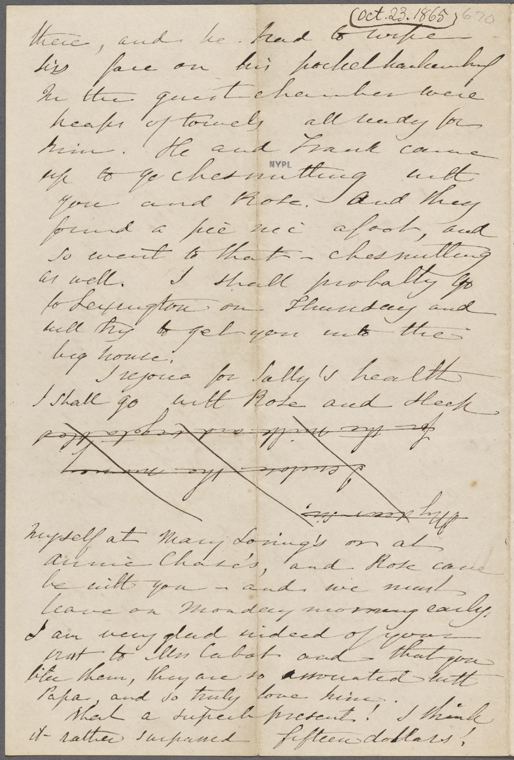 (Oct. 23. 1865) 670
there, and he had to wipe
his face on his pockethandkerchief
In the guest chamber were
heaps of towels all ready for
him. He and Frank came
NYPL
up to go chesnutting with
you and Rose. And they
found a pic nic afoot, and
so went to that - chesnutting
as well. I shall probably go
to Lexington on Thursday and
will try to get you into the
big house.
I rejoice for Sally's health
I shall go with Rose and sleep
myself at Mary Loring's or at
Annie Chase's, and Rose can
be with you - and we must
leave on Monday morning early.
I am very glad indeed of your
visit to Mrs Cabot and that you
like them, they are so associated with
Papa, and so truly love him.
What a superb present! I think
it rather surpassed fifteen dollars!